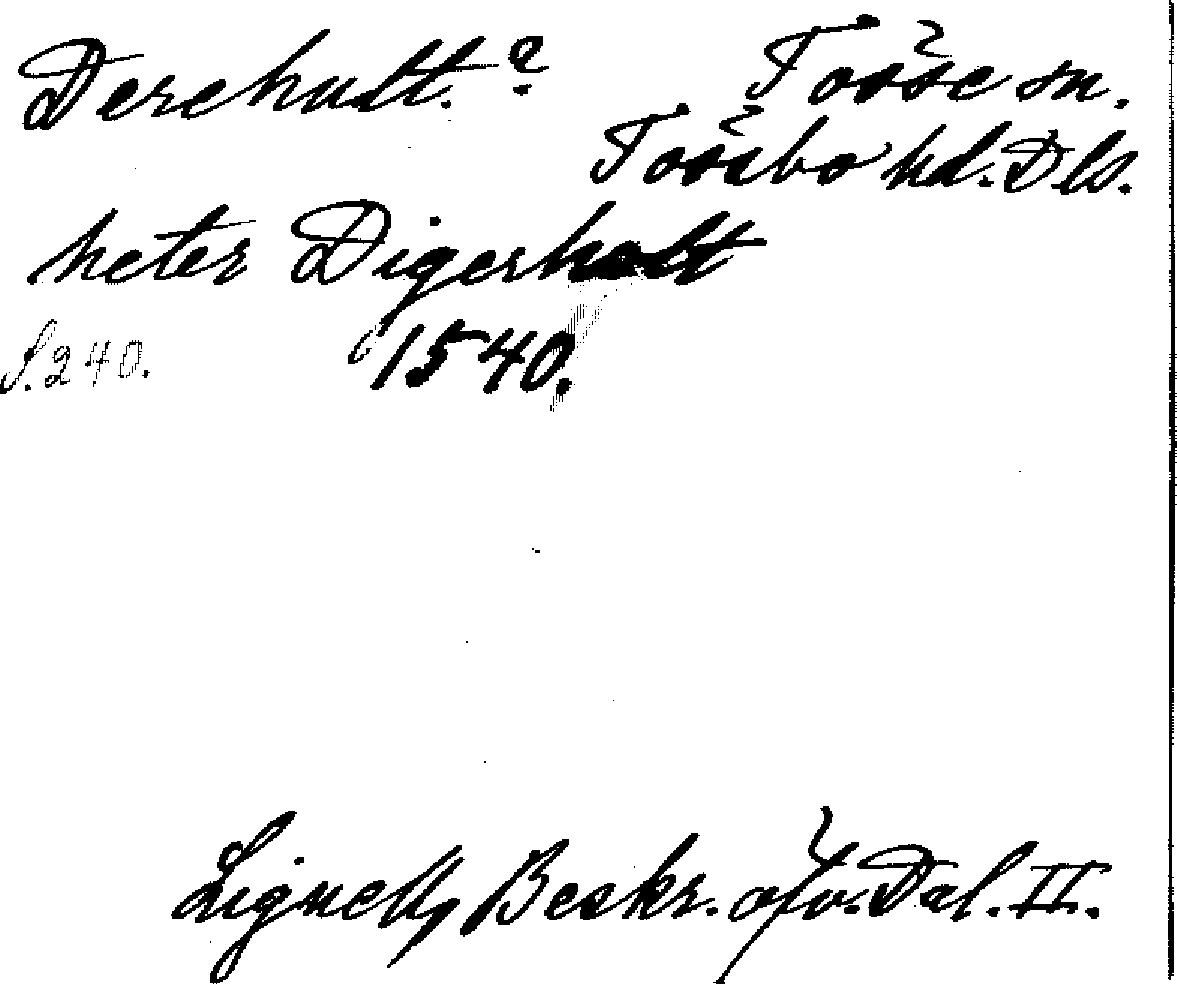 Derehult.? Tösse sn.
Tössbo hd. Dls.
heter Digerholt
S. 240. 1540.
Lignell, Beskr. öfv. Dal. II.